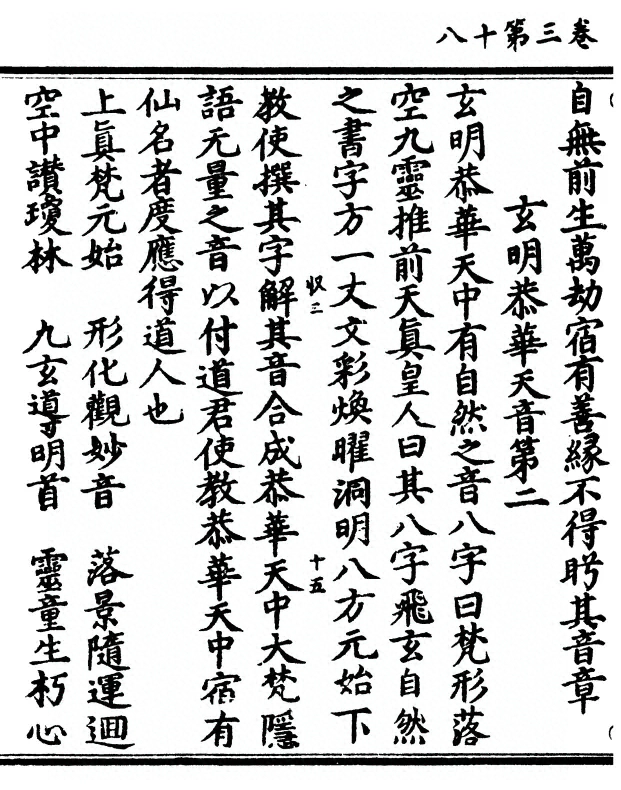 卷三第十八
自無前生萬劫宿有善緣不得眄其音章
玄明恭華天音第二
玄明恭華天中有自然之音八字曰梵形落
空九靈推前天眞皇人曰其八字飛玄自然
之書字方一丈文彩煥曜洞明八方元始下
収三
十五
教使撰其字解其音合成恭華天中大梵隱
語无量之音以付道君使教恭華天中宿有
仙名者度應得道人也
上眞梵元始 形化觀妙音 落景隨運迴
空中讚瓊林 九玄導明首 靈童生朽心